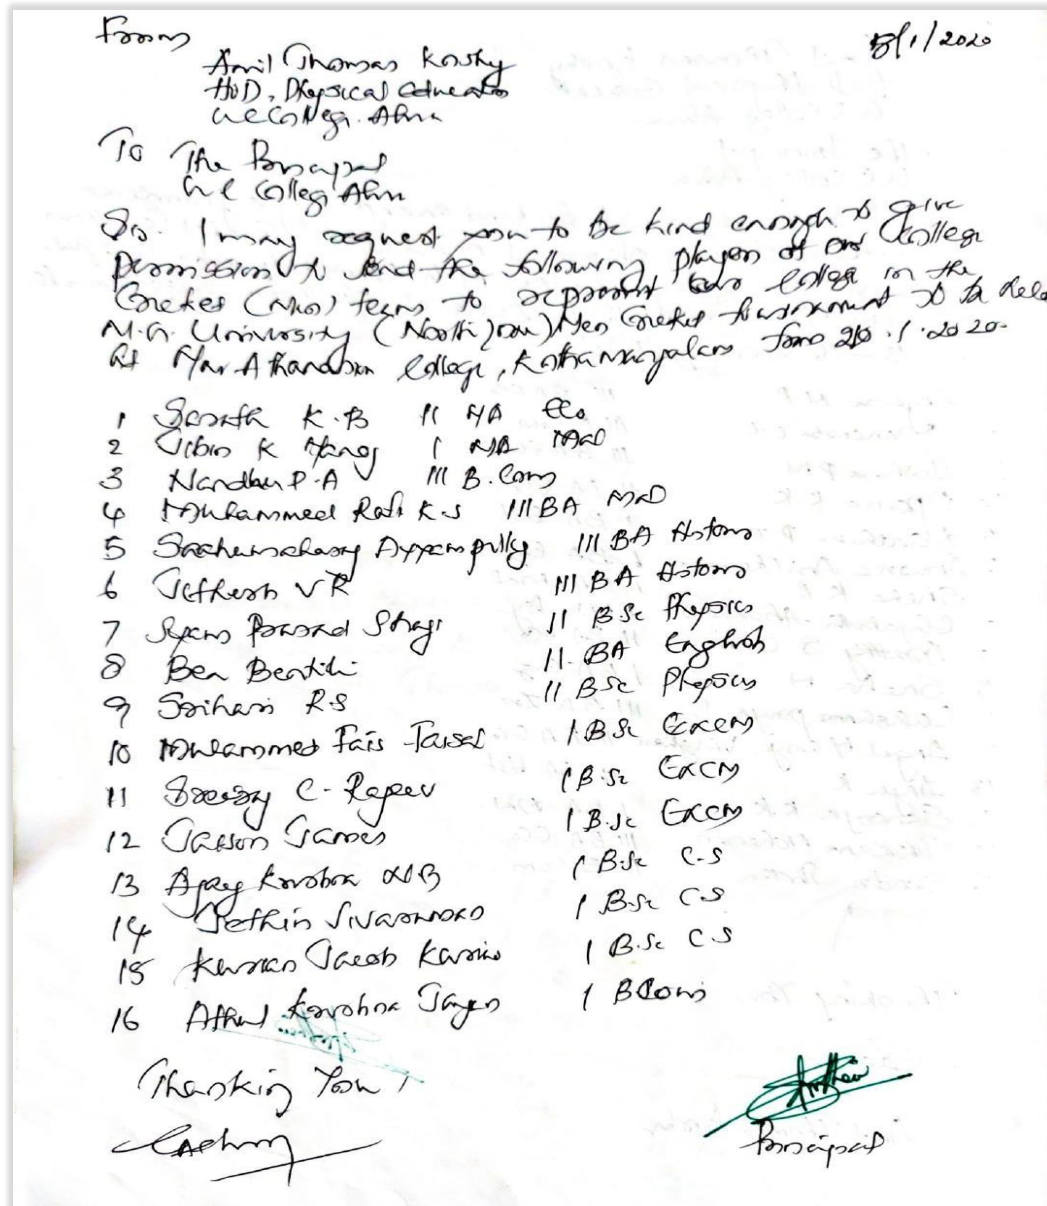 From
8/1/2020
Anil Thomas Koshy
HOD, Physical Education
UC College. Aluva
To The Principal
UC College Aluva
Sir. I may request you to be kind enough to give
permission to send the following players of our College
Cricket (Men) team to represent our college in the
M.G. University (North Zone) Men Cricket tournament to be held
at Mar Athanasius College, Kothamangalam from 20.1.2020.
1 Sarath K.B II MA Eco
2 Jibin K I MA
3 Nandhu P.A III B.Com
4 Muhammed Rafi K.S III BA
5 Ayyampilly III BA History
6 Jithesh V R III BA History
7 Syam Prasad Shaji II B.Sc Physics
8 Ben II. BA English
9 Srihari R.S II B.Sc Physics
10 Muhammed Fais Faisal I B.Sc
11 C. Rajeev I B.Sc
12 Jaison James I B.Sc
13 Ajay Krishna I B.Sc C.S
14 Jethin I B.Sc C.S
15 Jacob I B.Sc C.S
16 Athul Krishna I BCom
Thanking You
Principal